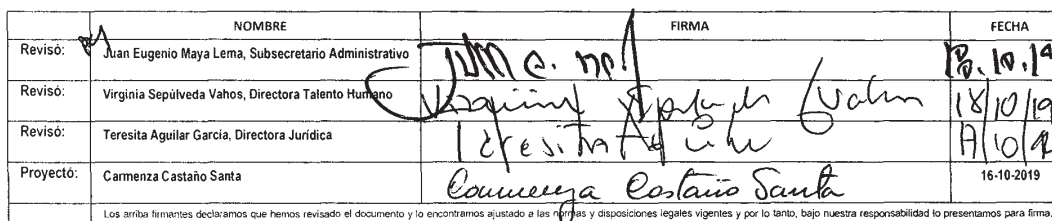 NOMBRE FIRMA FECHA
Revisó: Juan Eugenio Maya Lema, Subsecretario Administrativo
Revisó: Virginia Sepúlveda Vahos, Directora Talento Humano Virginia Sepúlveda Vahos 18/10/19
Revisó: Teresita Aguilar García, Directora Jurídica Teresita Aguilar
Proyectó: Carmenza Castaño Santa Carmenza Castaño Santa 16-10-2019
Los arriba firmantes declaramos que hemos revisado el documento y lo encontramos ajustado a las normas y disposiciones legales vigentes y por lo tanto, bajo nuestra responsabilidad lo presentamos para firma